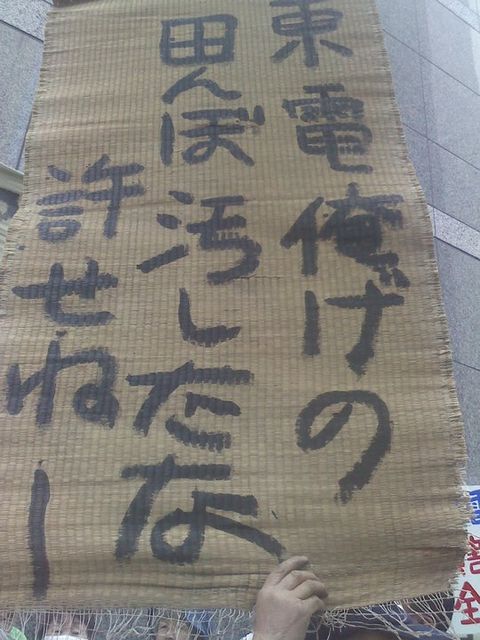 東電俺げの
田んぼ汚したな
許せねー